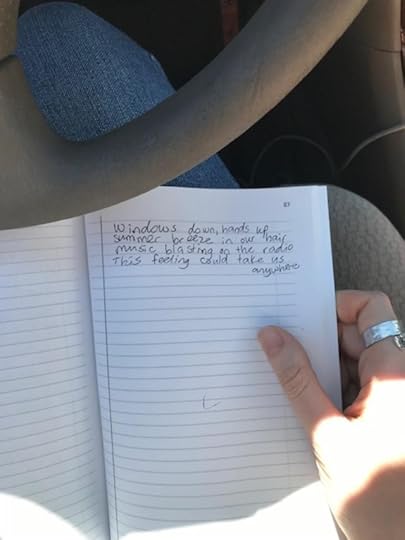 87
Windows down, hands up
summer breeze in our hair
music blasting on the radio
This feeling could take us
anywhere